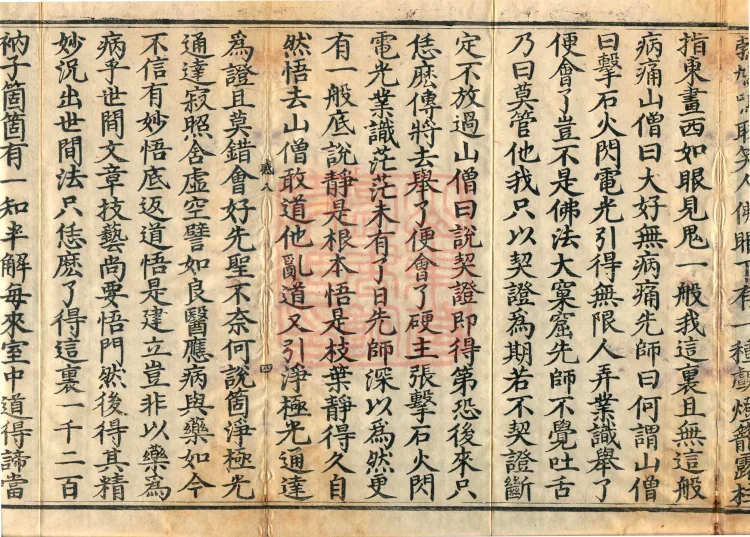 笑人佛眼下有一種覷燈籠露柱
指東畫西如眼見鬼一般我這裏且無這般
病痛山僧曰大好無病痛先師曰何謂山僧
曰擊石火閃電光引得無限人弄業識舉了
便會了豈不是佛法大窠窟先師不覺吐舌
乃曰莫管他我只以契證爲期若不契證斷
定不放過山僧曰說契證即得第恐後來只
恁麽傳將去舉了便會了硬主張擊石火閃
電光業識茫茫未有了日先師深以爲然更
有一般底說靜是根本悟是枝葉靜得久自
然悟去山僧敢道他亂道又引淨極光通達
八 四
爲證且莫錯會好先聖不奈何說箇淨極光
通達寂照含虛空譬如良醫應病與藥如今
不信有妙悟底返道悟是建立豈非以藥爲
病乎世間文章技藝尚要悟門然後得其精
妙況出世間法只恁麽了得這裏一千二百
衲子箇箇有一知半解每來室中道得諦當